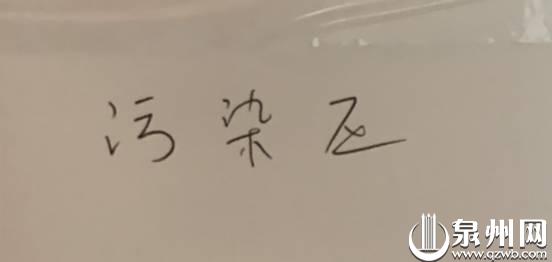 污染区
泉州网
www.qzwb.com